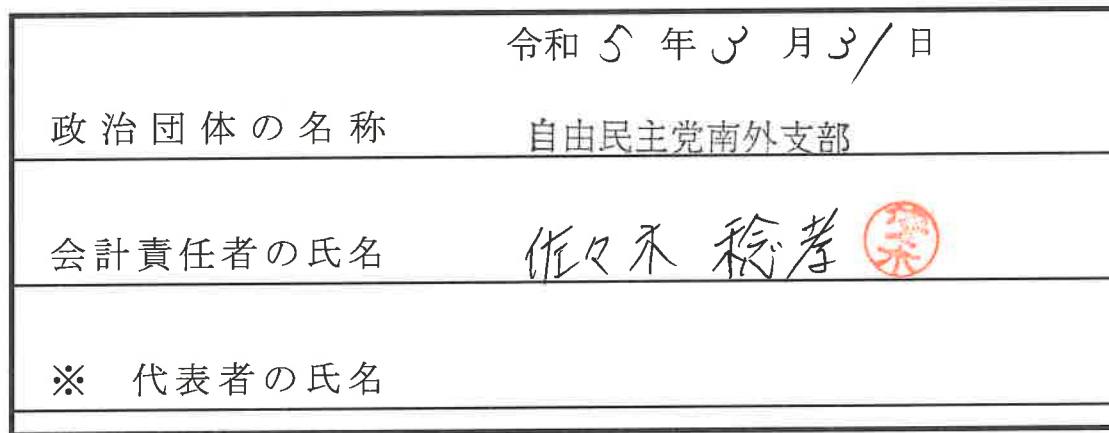 令和 5 年 3 月 31 日
政治団体の名称 自由民主党南外支部
会計責任者の氏名 佐々木 稔孝 佐々木
※ 代表者の氏名